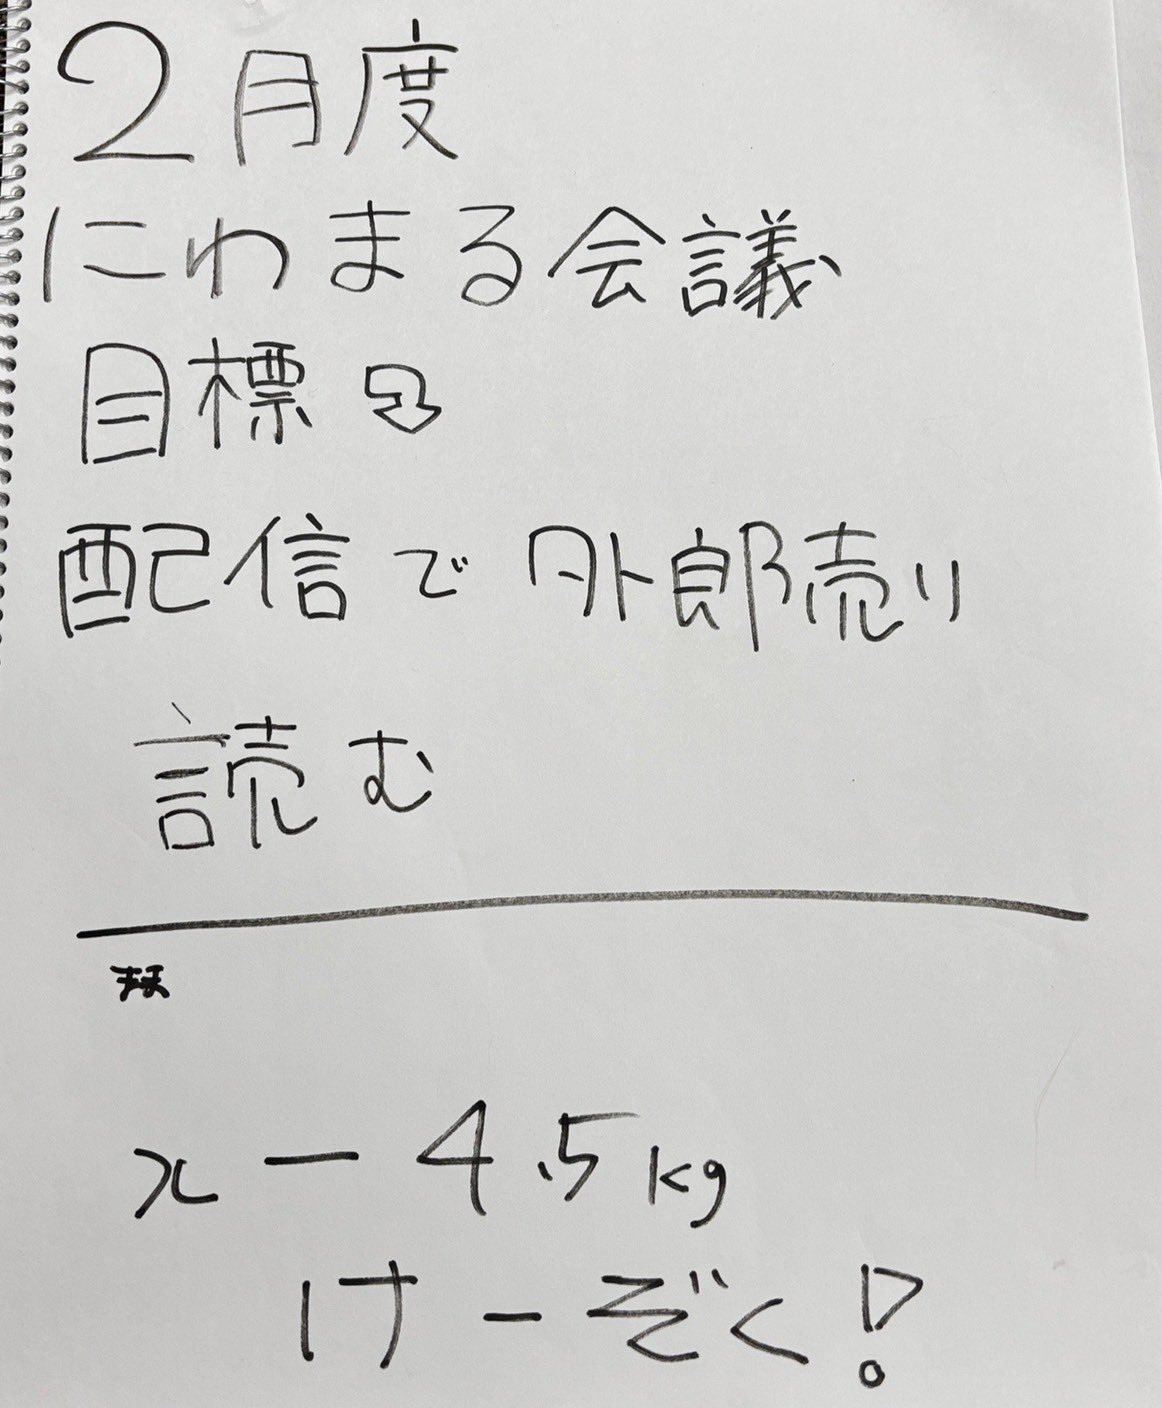 2月度
にわまる会議
目標
配信で外郎売り
読む
x－4.5kg
けーぞく!